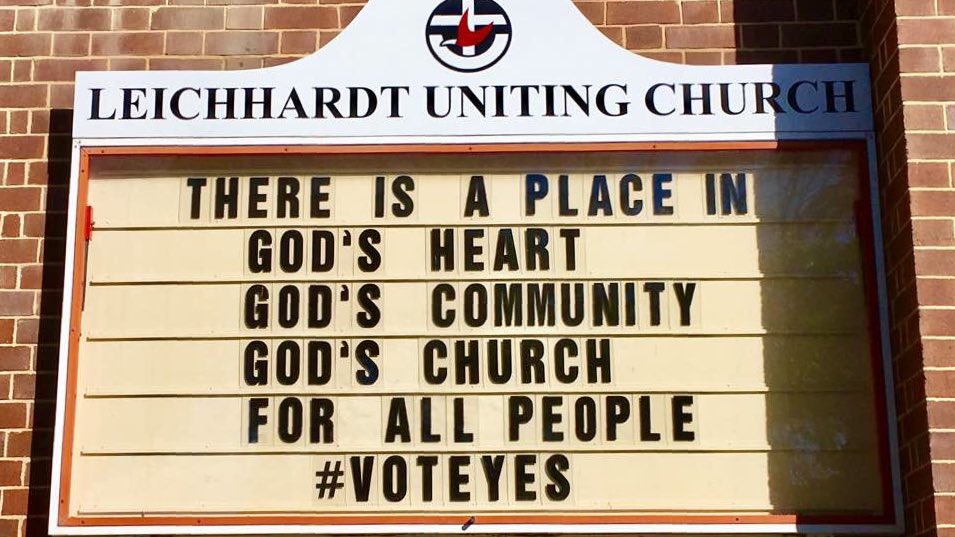 LEICHHARDT UNITING CHURCH
THERE IS A PLACE IN
GOD'S HEART
GOD'S COMMUNITY
GOD'S CHURCH
FOR ALL PEOPLE
#VOTEYES